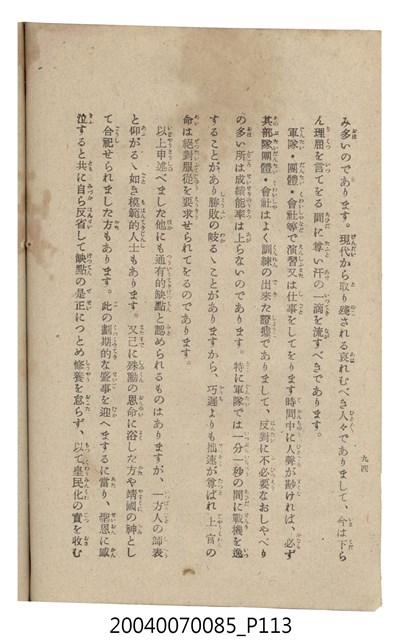 み多いのであります。現代から取り殘される哀れむべき人々でありまして、今は下ら
ん理屈を言てをる間に尊い汗の一滴を流すべきであります。
軍隊・團體・會社等で演習又は仕事をしてをります時間中に人聲が尠ければ、必ず
其部隊團體・會社はよく訓練の出來た證據でありまして、反對に不必要なおしやべり
の多い所は成績能率は上らないのであります。特に軍隊では一分一秒の間に戰機を逸
することがあり勝敗の岐るゝことがありますから、巧遲よりも拙速が尊ばれ上官の
命は絕對服從を要求せられてをるのであります。
以上申述べました他にも通有的缺點と認められるものはありますが、一方人の師表
と仰がるゝ如き模範的人士もあります。又己に殊勳の恩命に浴した方や靖國の神とし
て合祀せられました方もあります。此の劃期的な盛事を迎へまするに當り、聖恩に感
泣すると共に自ら反省して缺點の是正につとめ修養を怠らず、以て皇民化の實を收む
九四
20040070085_P113